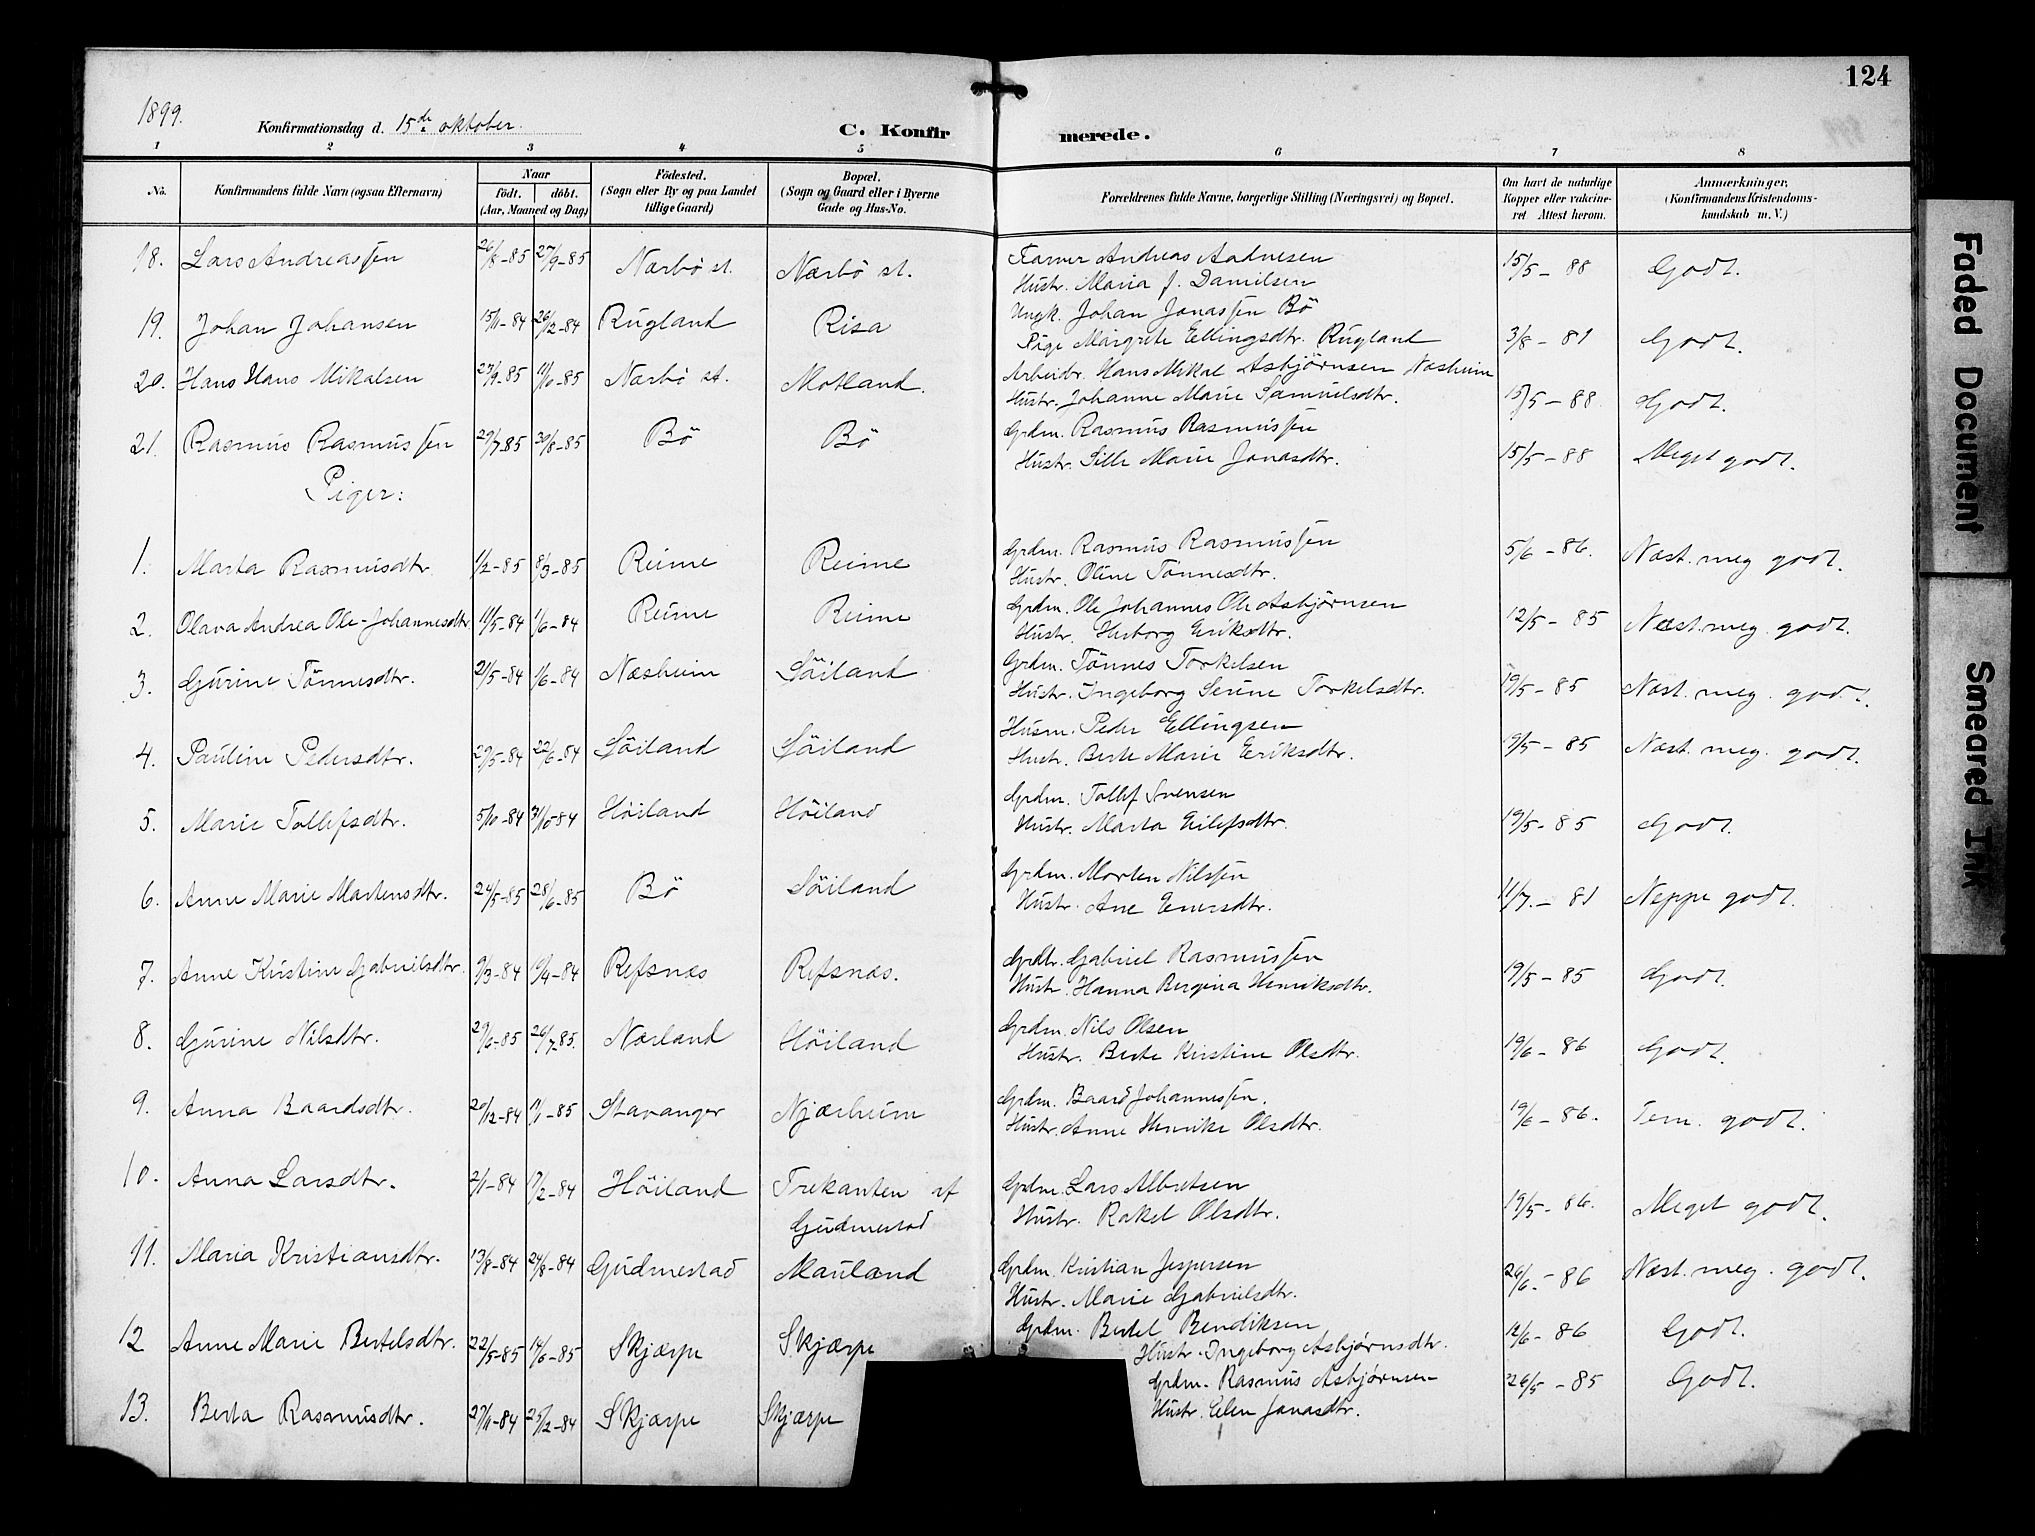 124
1899.
Konfirmationsdag d. 15de oktober.
C. Konfirmerede.
1 2 3 4 5 6 7 8
No. Konfirmandens fulde Navn (ogsaa Efternavn) Naar født. døbt. (Aar, Maaned og Dag) Fødested. (Sogn eller By og paa Landet tillige Gaard) Bopæl. (Sogn og Gaard eller i Byerne Gade og Hus-No. Forældrenes fulde Navne, borgerlige Stilling (Næringsvei) og Bopæl. Om havt de naturlige Kopper eller vakcineret Attest herom. Anmærkninger. (Konfirmandens Kristendomskundskab m. V.)
18. Lars Andreassen 26/8-85 27/9-85 Nærbö st. Nærbö st. Farver Andreas Aadnesen 15/5-88 Godt.
Hustr. Maria f. Danielsen
19. Johan Johansen 15/11-84 26/12-84 Rugland Risa Ungk. Johan Jonassen Bö
Pige Margrete Ellingsdtr. Rugland 3/8-81 Godt.
20. Hans Hans Mikalsen 27/9-85 11/10-85 Nærbö st. Motland. Arbeidr. Hans Mikal Asbjörnsen Næsheim
Hustr. Johanne Marie Samuelsdtr. 15/5-88 Godt.
21. Rasmus Rasmussen 29/7-85 30/8-85 Bö Bö Grdm. Rasmus Rasmussen
Hustr. Sille Marie Jonasdtr. 15/5-88 Meget godt.
Piger:
1. Marta Rasmusdtr. 1/2-85 8/3-85 Reime Reime Grdm. Rasmus Rasmussen 5/6-86. Næst. meg godt.
Hustr. Oline Tönnesdtr.
2. Olava Andrea Ole-Johannesdtr. 11/5-84 1/6-84 Reime Reime Grdm. Ole Johannes Ole Asbjörnsen 12/5-85 Næst. meg. godt.
Hustr. Herborg Eriksdtr.
3. Gurine Tönnesdtr. 21/5-84 1/6-84 Næsheim Söiland Grdm. Tönnes Torkelsen
Hustr. Ingeborg Serine Torkelsdtr. 19/5-85 Næst. meg. godt.
4. Pauline Pedersdtr. 29/5-84 22/6-84 Söiland Söiland Husm. Peder Ellingsen 19/5-85 Næst. meg. godt.
Hustr. Berte Marie Eriksdtr.
5. Marie Tollefsdtr. 5/10-84 31/10-84 Höiland Höiland Grdm. Tollef Svensen
Hustr. Marta Eilefsdtr. 19/5-85 Godt.
6. Anne Marie Martensdtr. 24/5-85 28/6-85 Bö Söiland Grdm. Morten Nilssen
Hustr. Ane Enersdtr. 11/7.-81 Neppe godt.
7. Anne Kirstine Gabrielsdtr. 9/3-84 10/4-84 Refsnæs Refsnæs. Grdbr. Gabriel Rasmussen
Hustr. Hanna Bergina Henriksdtr. 19/5-85 Godt.
8. Gurine Nilsdtr. 29/6-85 26/7-85. Nærland Höiland Grdm. Nils Olsen
Hustr. Berte Kirstine Olsdtr. 19/6-86 Godt.
9. Anna Baardsdtr. 20/12-84 11/1-85 Stavanger Njærheim Grdm. Baard Johannessen.
Hustr. Anne Henrike Olsdtr. 19/6-86. Tem. godt.
10. Anna Larsdtr. 2/1-84 17/2-84 Höiland Trekanten af Gudmestad Grdm. Lars Albretsen
Hustr. Rakel Olsdtr. 19/5-86. Meget godt.
11. Maria Kristiansdtr. 13/8-84 24/8-84 Gudmestad Mauland Grdm. Kristian Jespersen
Hustr. Marie Gabrielsdtr. 26/6.-86 Næst. meg. godt.
12 Anne Marie Bertelsdtr. 22/5-85 14/6-85 Skjærpe Skjærpe Grdm. Bertel Bendiksen 12/6-86 Godt.
Hustr. Ingeborg Asbjörnsdtr.
13. Berta Rasmusdtr. 27/11-84 25/12-84 Skjærpe Skjærpe Grdm. Rasmus Asbjörnsen 26/5-85 Godt.
Hustr. Elen Jonasdtr.
Faded Document
Smeared Ink